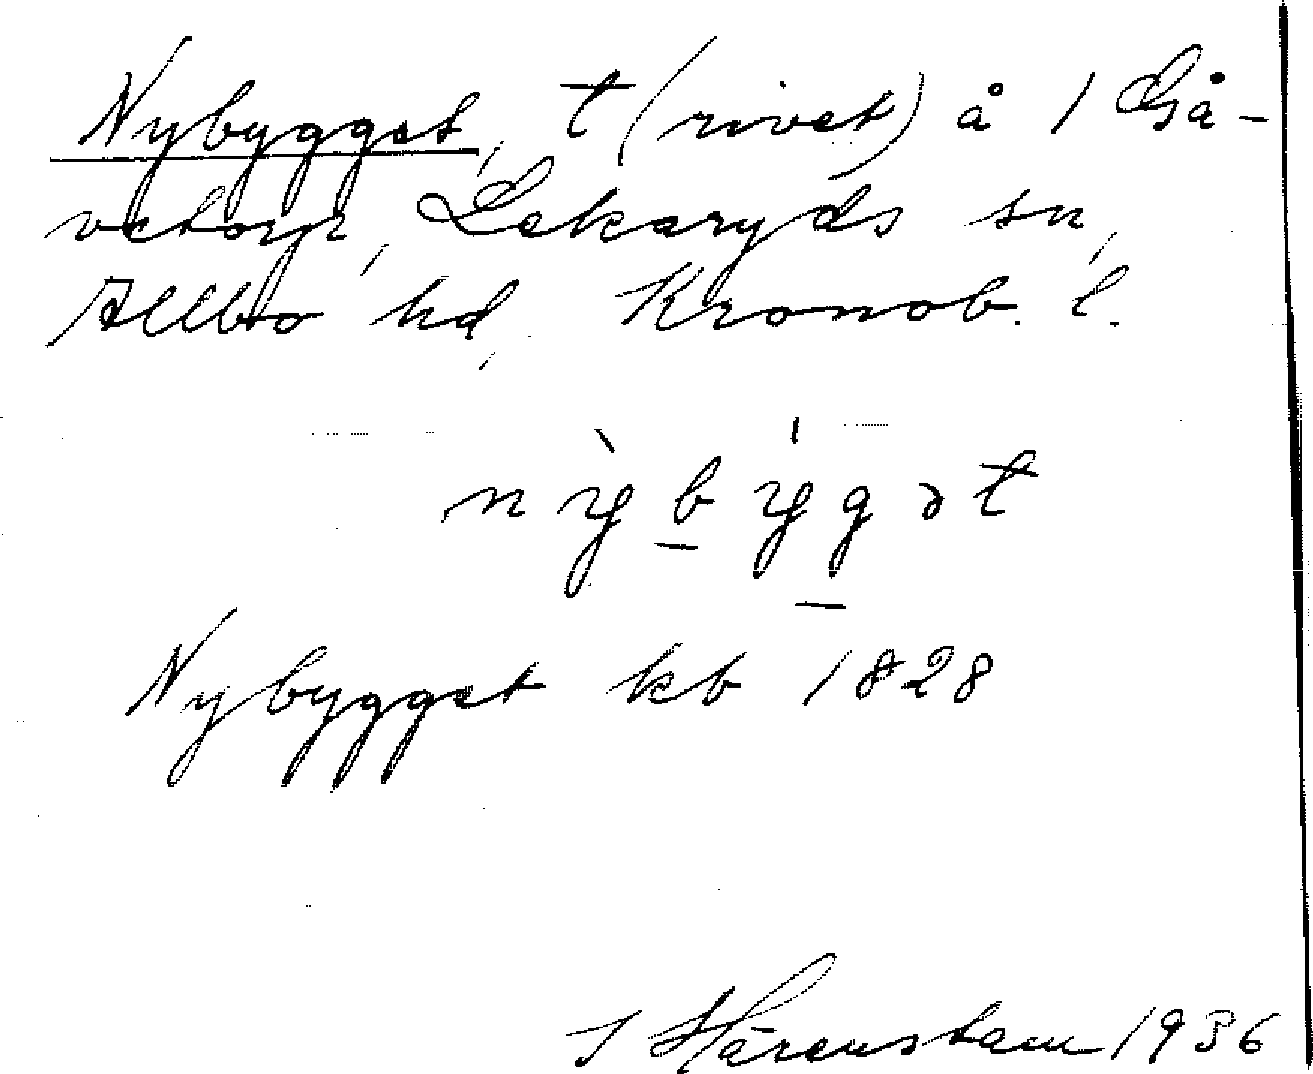 Nybygget, t (rivet) å 1 Gå-
vetorp, Lekaryds sn,
Allbo hd, Kronob. l.
nỳbýgət
Nybygget kb 1828
J Härenstam 1936